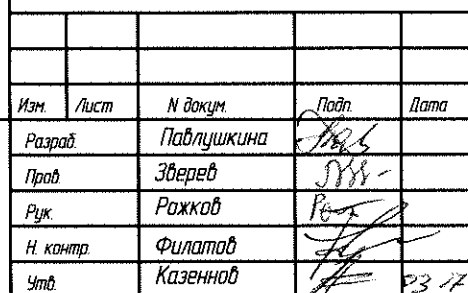 Изм. Лист N докум. Подп. Дата
Разраб. Павлушкина
Пров. Зверев
Рук. Рожков
Н. контр. Филатов
Утв. Казеннов